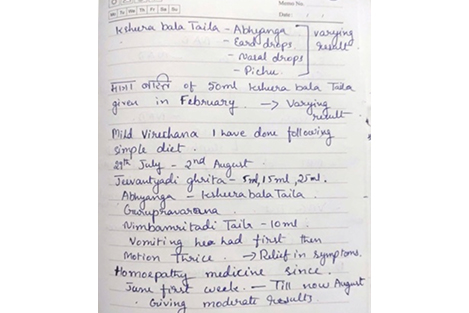 Memo No.
Mo Tu We Th Fr Sa Su
Date: / /
Kshura bala Taila - Abhyanga varying
- Ear drops result.
- Nasal drops
- Pichu.
of 50ml Ksheera bala Taila
given in February. → Varying
result
Mild Virechana I have done following
simple diet.
29th July - 2nd August.
Jeevantyadi ghrita - 5ml, 15ml, 25ml.
Abhyanga - Ksheera bala Taila.
Nimbamritadi Taila - 10ml.
Vomiting had first then
Motion Thrice. → Relief in symptoms.
Homoepathy medicine since.
June first week. — Till now August
Giving moderate results.